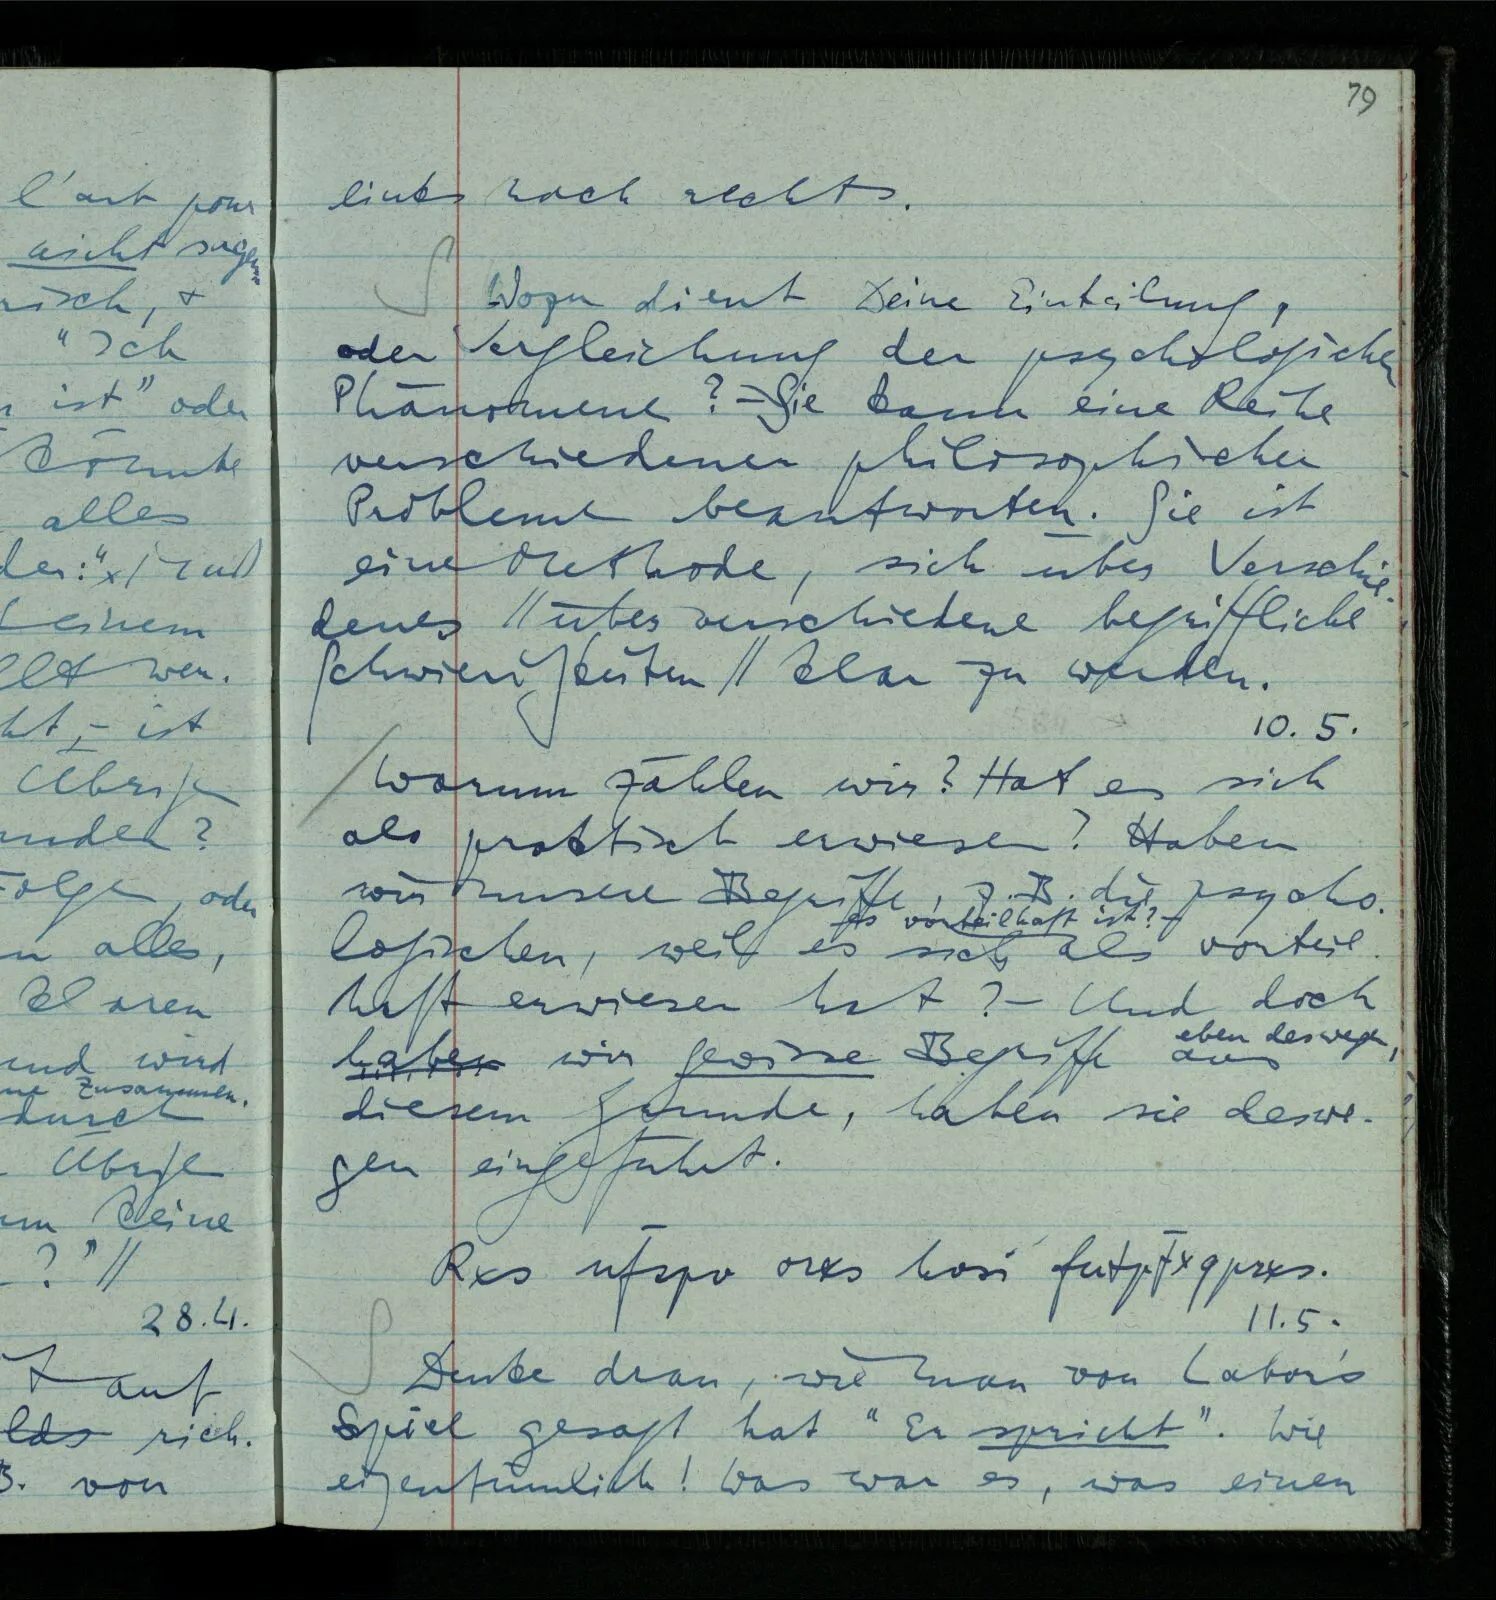 l'art pour
nicht sagen
risch, +
"Ich
ist" oder
könnte
alles
der:"x/ und
keinem
llt wer.
ht, – ist
Übrige
anden?
Folge, oder
n alles,
klaren
und wird
ne Zusammen.
durch
Übrige
um keine
?"//
28.4.
t auf
lds rich.
B. von
79
links nach rechts.
Wozu dient Deine Einteilung,
oder Vergleichung der psychologischen
Phänomene? – Sie kann eine Reihe
verschiedener philosophischer
Probleme beantworten. Sie ist
eine Methode, sich über Verschie-
denes //über verschiedene begriffliche
Schwierigkeiten// klar zu werden.
10.5.
Warum zählen wir? Hat es sich
als praktisch erwiesen? Haben
wir unsere Begriffe, z.B. die psycho-
es vorteilhaft ist? –
logischen, weil es sich als vorteil-
haft erwiesen hat? – Und doch
eben deswegen,
haben wir gewisse Begriffe aus
diesem Grunde, haben sie deswe-
gen eingeführt.
Rxs nfspv orxs hosi
11.5.
Denke dran, wie man von Labor's
Spiel gesagt hat "Er spricht". Wie
eigentümlich! Was war es, was einen